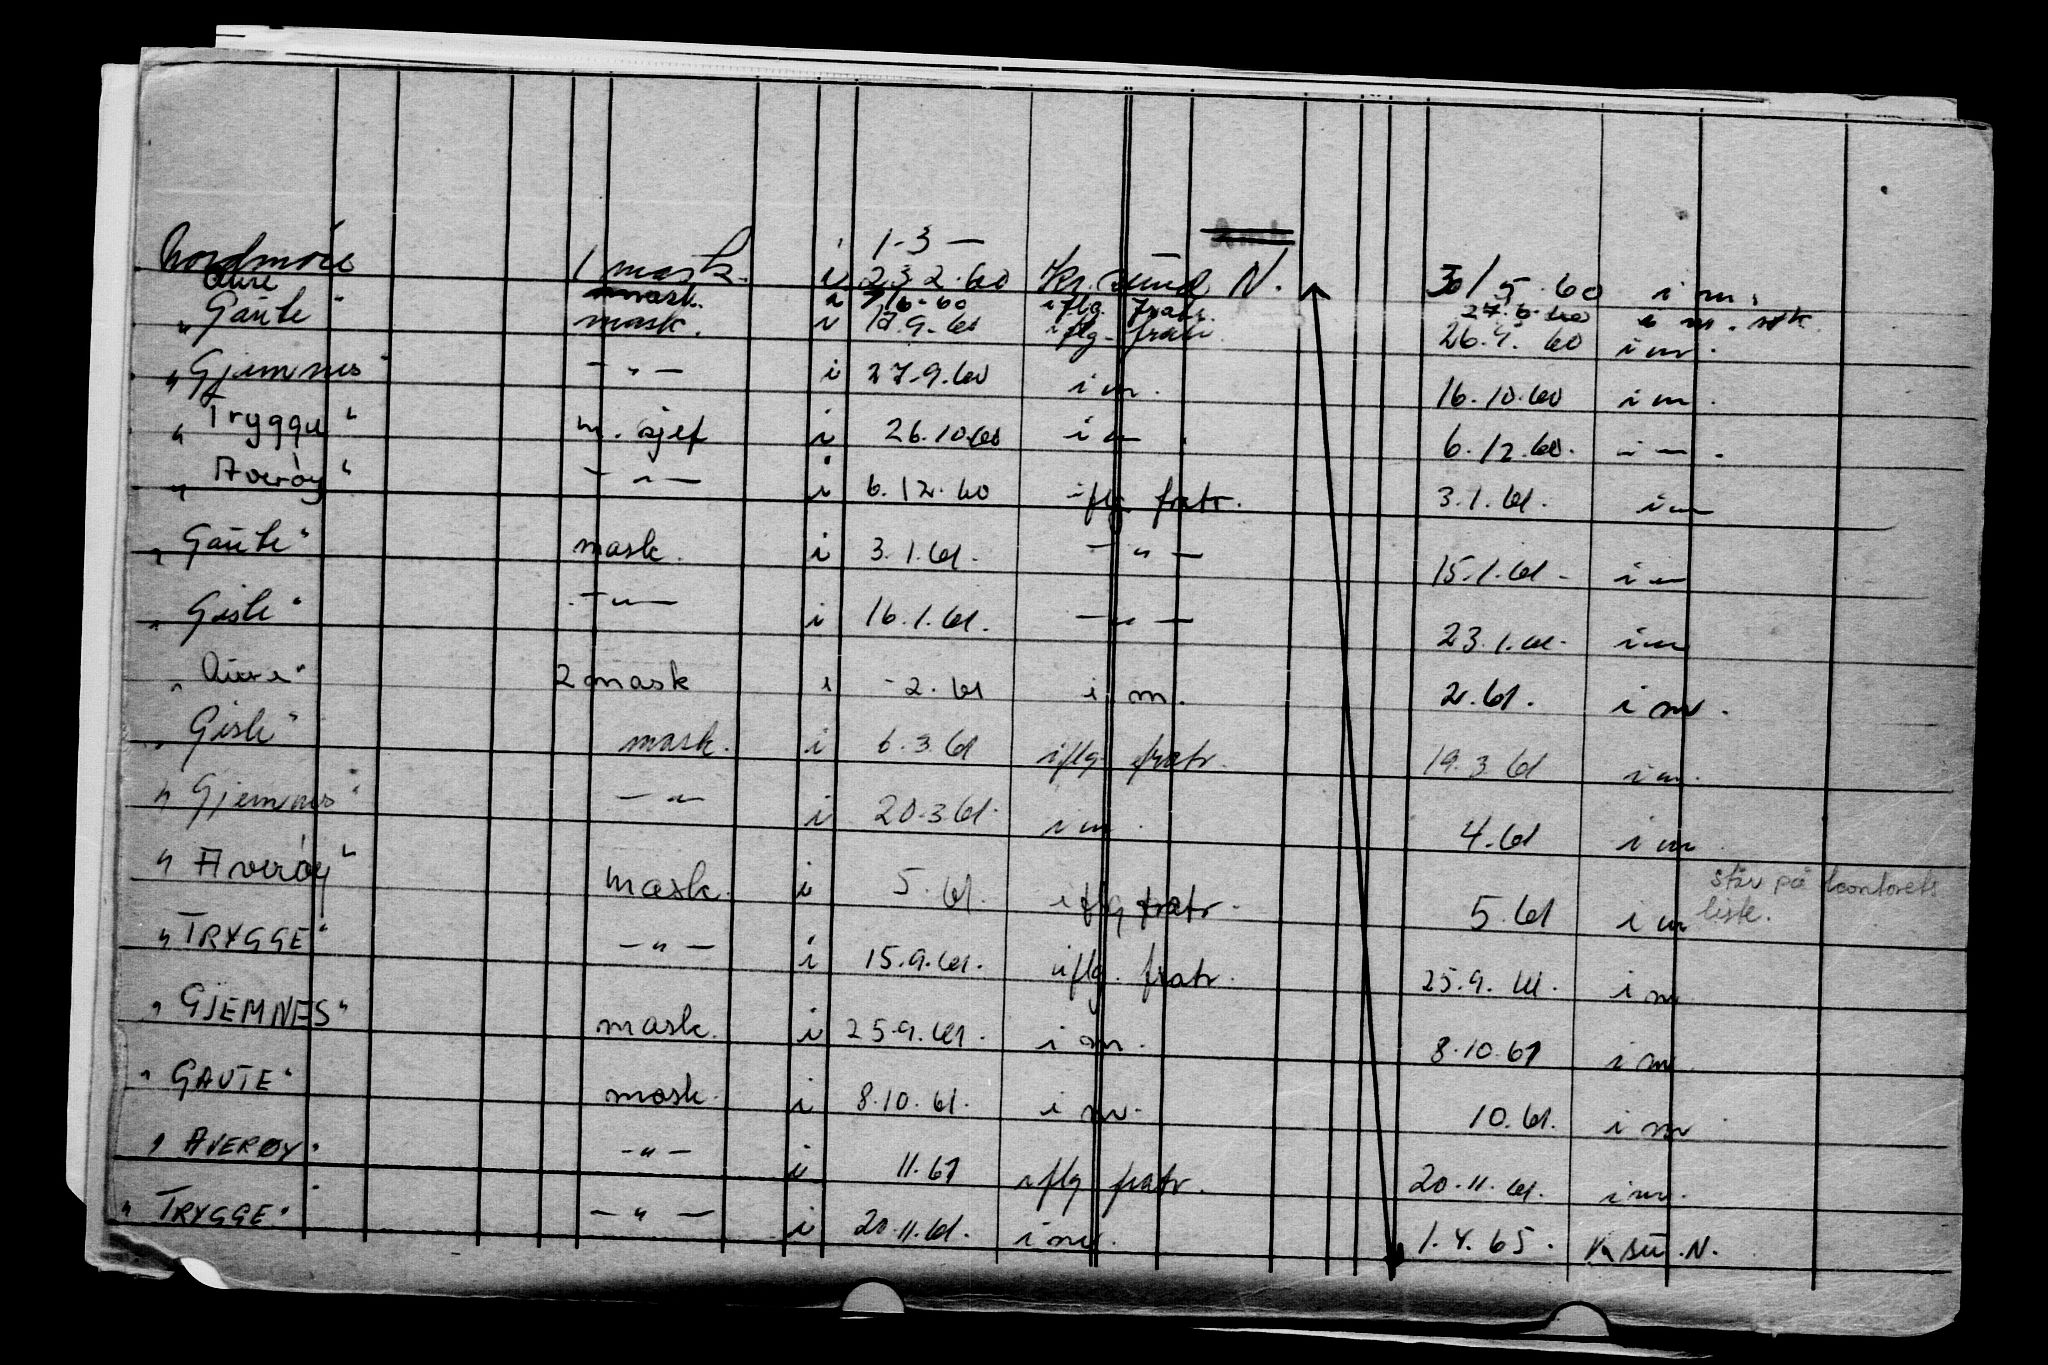 1-3 —
Nordmøre 1 mask. i 23 2.60 Kr. sund N. 30/5.60 i m.
Aure mask. i 7/6-60 iflg. fratr. 27.6.60 m.
" Gaute " mask. i 17.9.60 iflg. fratr. 26.9.60 i m.
" Gjemnes " — " — i 27.9.60 i m. 16.10.60 i m.
" Trygge " m. sjef i 26.10.60 i m. 6.12.60. i m.
" Averøy " — " — i 6.12.60 iflg fratr. 3.1.61. i m
" Gaute " mask. i 3.1.61. — " — 15.1.61 - i m
" Gisle " — " — i 16.1.61. — " — 23.1.61- i m
" Aure " 2 mask i -2.61 i m. 2.61. i m.
" Gisle " mask. i 6.3.61 iflg. fratr. 19.3.61 i m.
" Gjemnes " — " — i 20.3.61. i m. 4.61 i m
" Averøy " mask. i 5.61. iflg fratr. 5.61 i m står på kontorets liste.
" TRYGGE " — " — i 15.9.61. iflg. fratr. 25.9.61. i m
" GJEMNES " mask. i 25.9.61. i m. 8.10.61 i m
" GAUTE " mask. i 8.10.61. i m. 10.61. i m
" AVERØY " — " — i 11.61 iflg fratr. 20.11.61. i m.
" TRYGGE " — " — i 20.11.61. i m. 1.4.65. K. su. N.